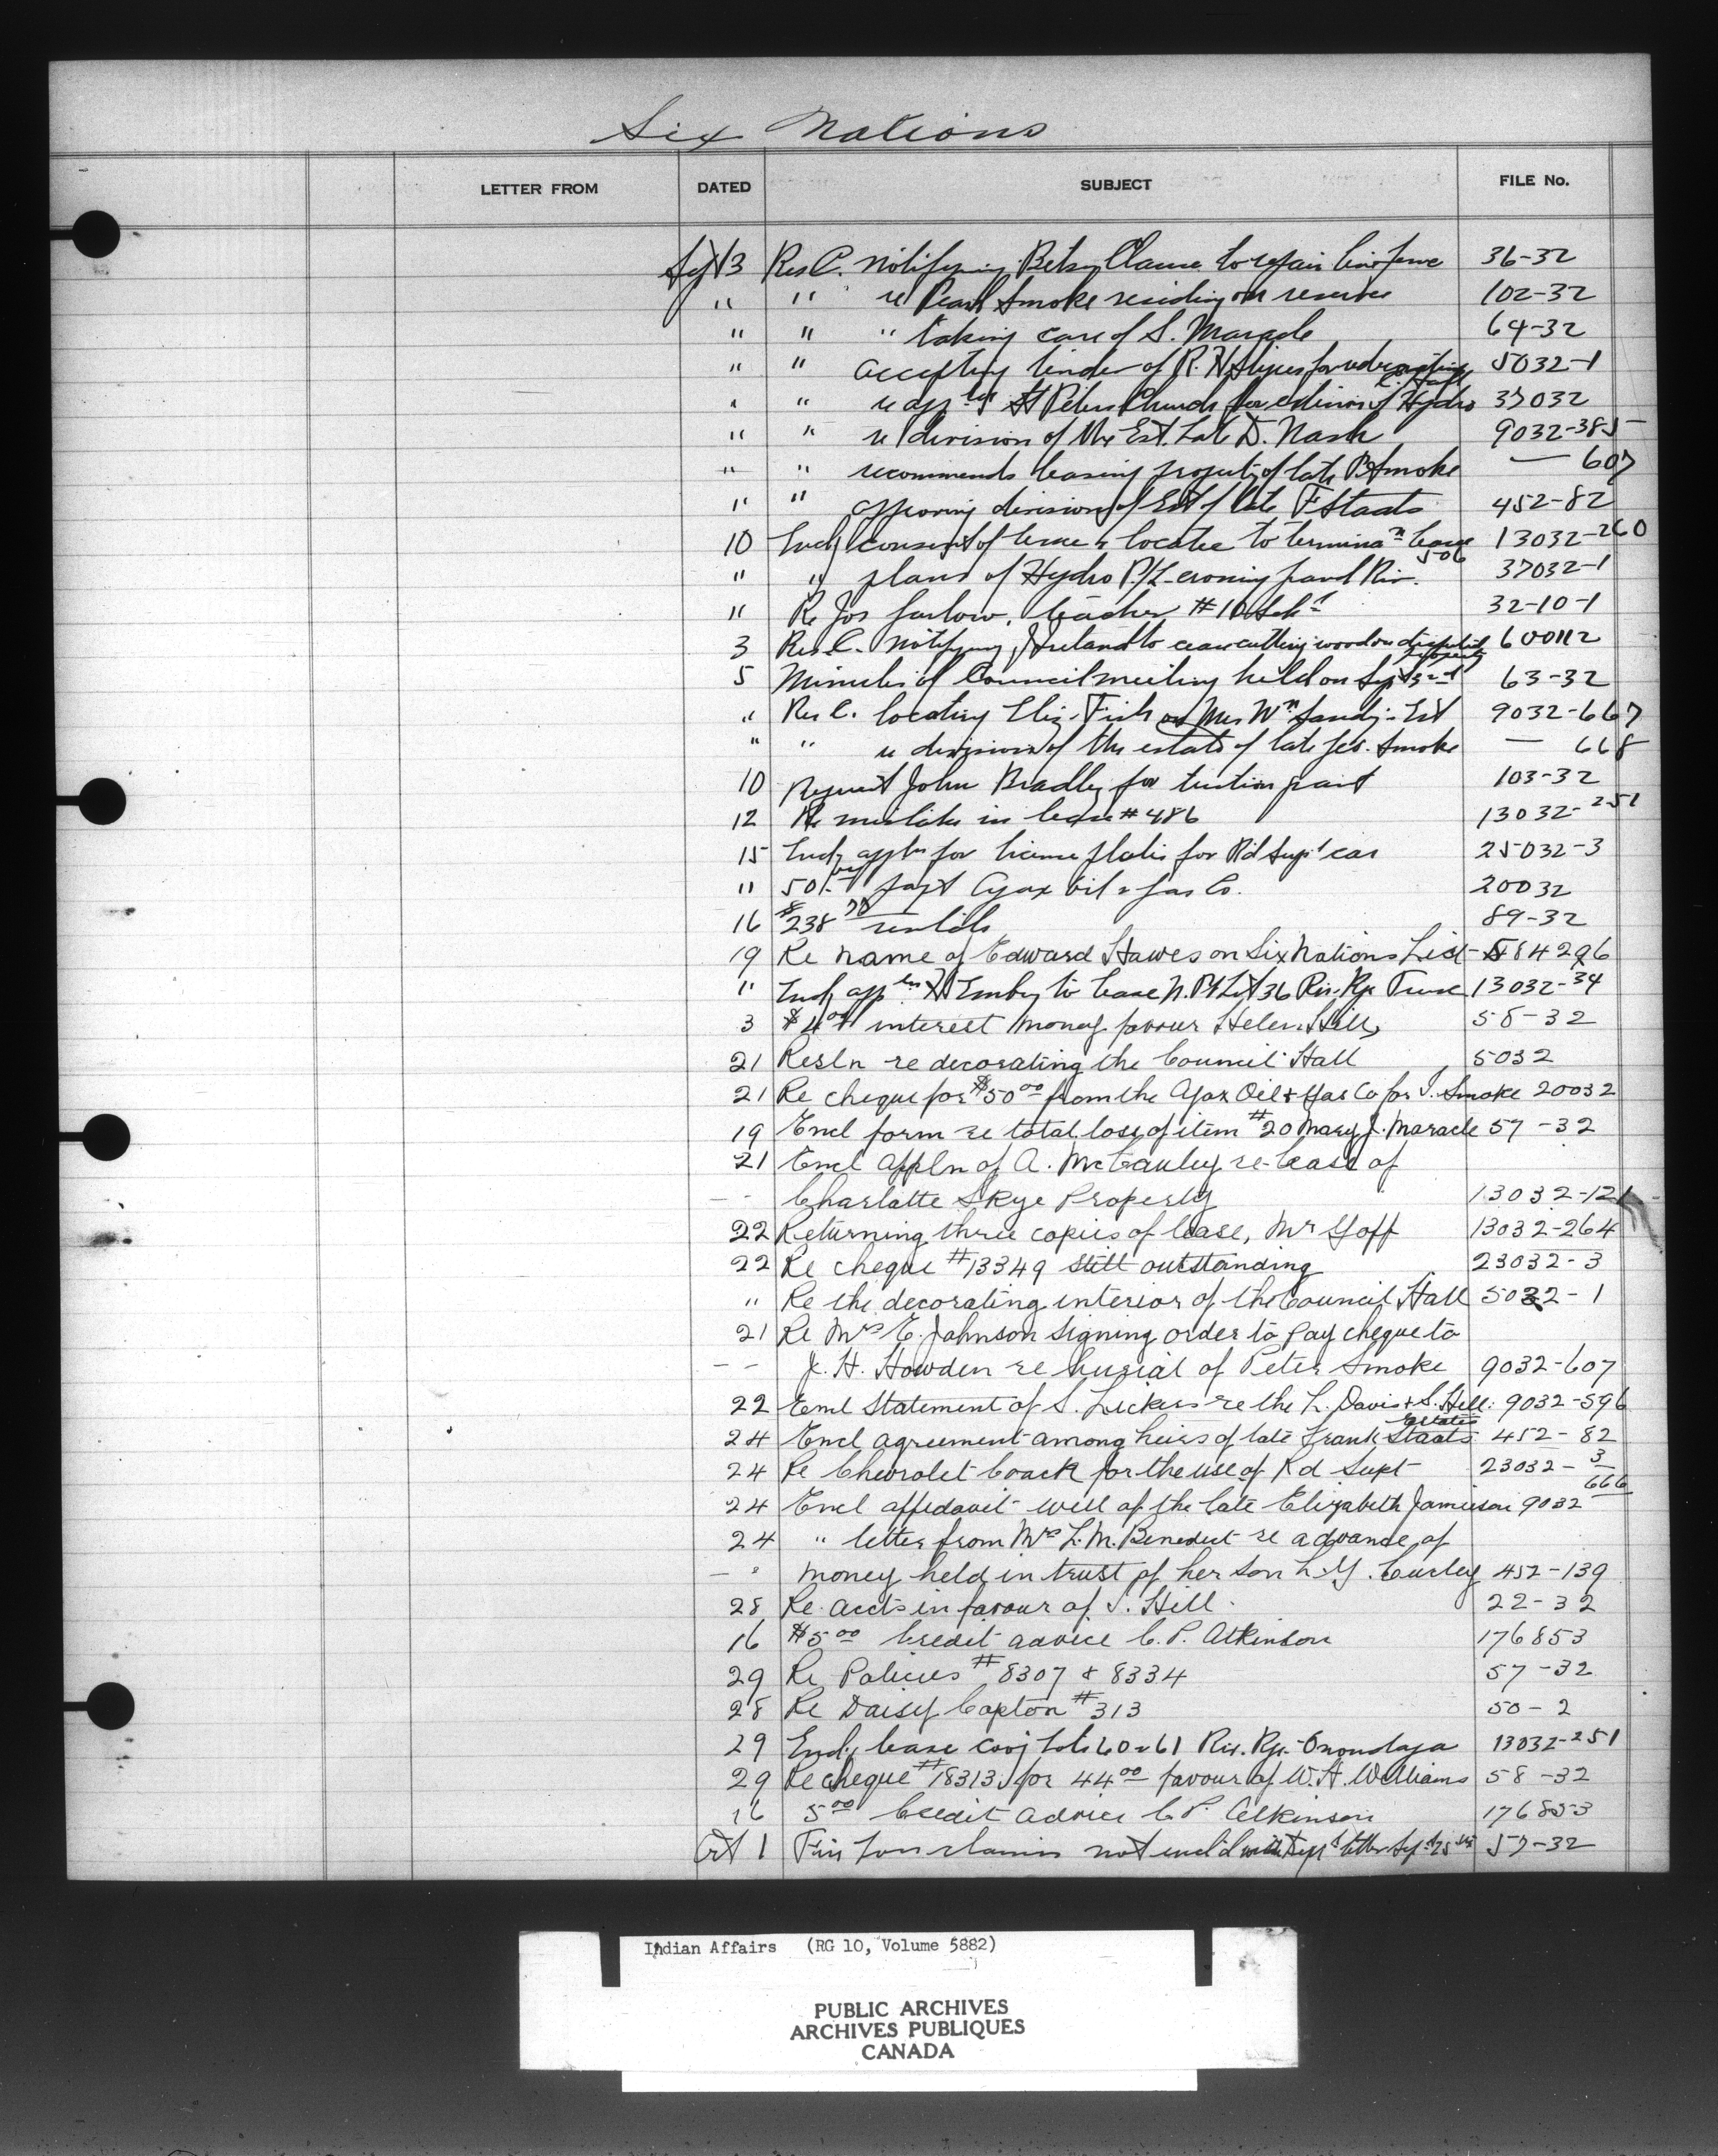 Six Nations
LETTER FROM DATED SUBJECT FILE No.
Sept 3 Res C. notifying Betsy Clause to repair line fence 36-32
" " re Pearl Smoke residing on reserve 102-32
" " " taking care of S. Maracle 64-32
" " accepting tender of R. H. for redecorating C. Hall 5032-1
" " re appln St Peters Church for extension of Hydro 37032
" " re division of the Est. Late D. Nash 9032-385
" " recommends leasing property of late P. Smoke — 607
" " approving division of Est of late F Staats 452-82
10 Encl consent of lessee & locatee to termina n lease 506 13032-260
" " plans of Hydro P/L crossing Grand Riv. 37032-1
" Re Jos , teacher #10 Schl 32-10-1
3 Res. C. notifying J Ireland to cease cutting wood on disputed property 600112
5 Minutes of Council meeting held on Sept 3rd 63-32
" Res C. locating Eliz. Fish on Mrs Wm Est 9032-667
" " re division of the estate of late Jes. Smoke — 668
10 Request John Bradley for tuition grant 103-32
12 Re mistake in lease #486 13032-251
15 Encl appln for license plates for Rd Supt car 25032-3
" 50.00 payt Ajax Oil & Gas Co. 20032
16 $238 rentals 89-32
19 Re name of Edward Hawes on Six Nations List 584296
" Encl appln Emby to lease N. Pt Lot 36 Riv. Rge Tusc 13032-34
3 $4.00 interest money favour Helen Hill, 58-32
21 Resln re decorating the Council Hall 5032
21 Re cheque for $50.00 from the Ajax Oil & Gas Co for J. Smoke 20032
19 Encl form re total loss of item #20 Mary J. Maracle 57-32
21 Encl appln of A. McCauley re lease of
- - Charlotte Skye Property 13032-121
22 Returning three copies of lease, Mr Goff 13032-264
22 Re cheque #13349 still outstanding 23032-3
" Re the decorating interior of the Council Hall 5032-1
21 Re Mrs E. Johnson signing order to pay cheque to
- - J. H. Howden re burial of Peter Smoke 9032-607
22 Encl Statement of S. Lickers re the L. Davis & S. Hill Estates 9032-596
24 Encl agreement among heirs of late Frank Staats 452-82
24 Re Chevrolet Coach for the use of Rd Supt 23032-3
24 Encl affidavit will of the late Elizabeth Jamieson 9032 666
24 " letter from Mrs L. M. Benedict re advance of
- " money held in trust of her son L. G. Curley 452-139
28 Re accts in favour of J. Hill. 22-32
16 $5.00 Credit advice C. P. Atkinson 176853
29 Re Policies # 8307 & 8334 57-32
28 Re Daisy Copton #313 50-2
29 Encl. lease covg Lots 60 & 61 Riv. Rge. Onondaga 13032-251
29 Re cheque #18313 for 44.00 favour of W. A. Williams 58-32
16 5.00 Credit advice C P. Atkinson 176853
Oct 1 Fire Loss claims not encl'd with Dept letter Sept 25th 57-32
Indian Affairs (RG 10, Volume 5882)
PUBLIC ARCHIVES
ARCHIVES PUBLIQUES
CANADA